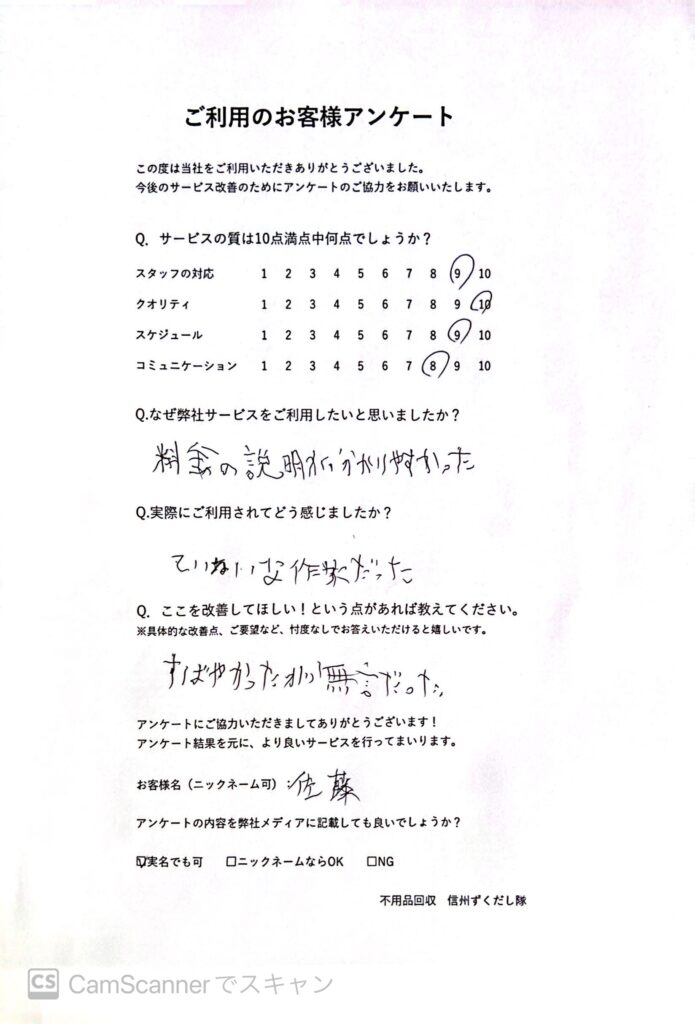 ご利用のお客様アンケート
この度は当社をご利用いただきありがとうございました。
今後のサービス改善のためにアンケートのご協力をお願いいたします。
Q. サービスの質は10点満点中何点でしょうか？
スタッフの対応 1 2 3 4 5 6 7 8 9 10
クオリティ 1 2 3 4 5 6 7 8 9 10
スケジュール 1 2 3 4 5 6 7 8 9 10
コミュニケーション 1 2 3 4 5 6 7 8 9 10
Q.なぜ弊社サービスをご利用したいと思いましたか？
料金の説明が分かりやすかった
Q.実際にご利用されてどう感じましたか？
ていねいな作業だった
Q. ここを改善してほしい！という点があれば教えてください。
※具体的な改善点、ご要望など、忖度なしでお答えいただけると嬉しいです。
すばやかったが無言だった
アンケートにご協力いただきましてありがとうございます！
アンケート結果を元に、より良いサービスを行ってまいります。
お客様名（ニックネーム可）：佐藤
アンケートの内容を弊社メディアに記載しても良いでしょうか？
☑実名でも可 □ニックネームならOK □NG
不用品回収 信州ずくだし隊
CS CamScannerでスキャン